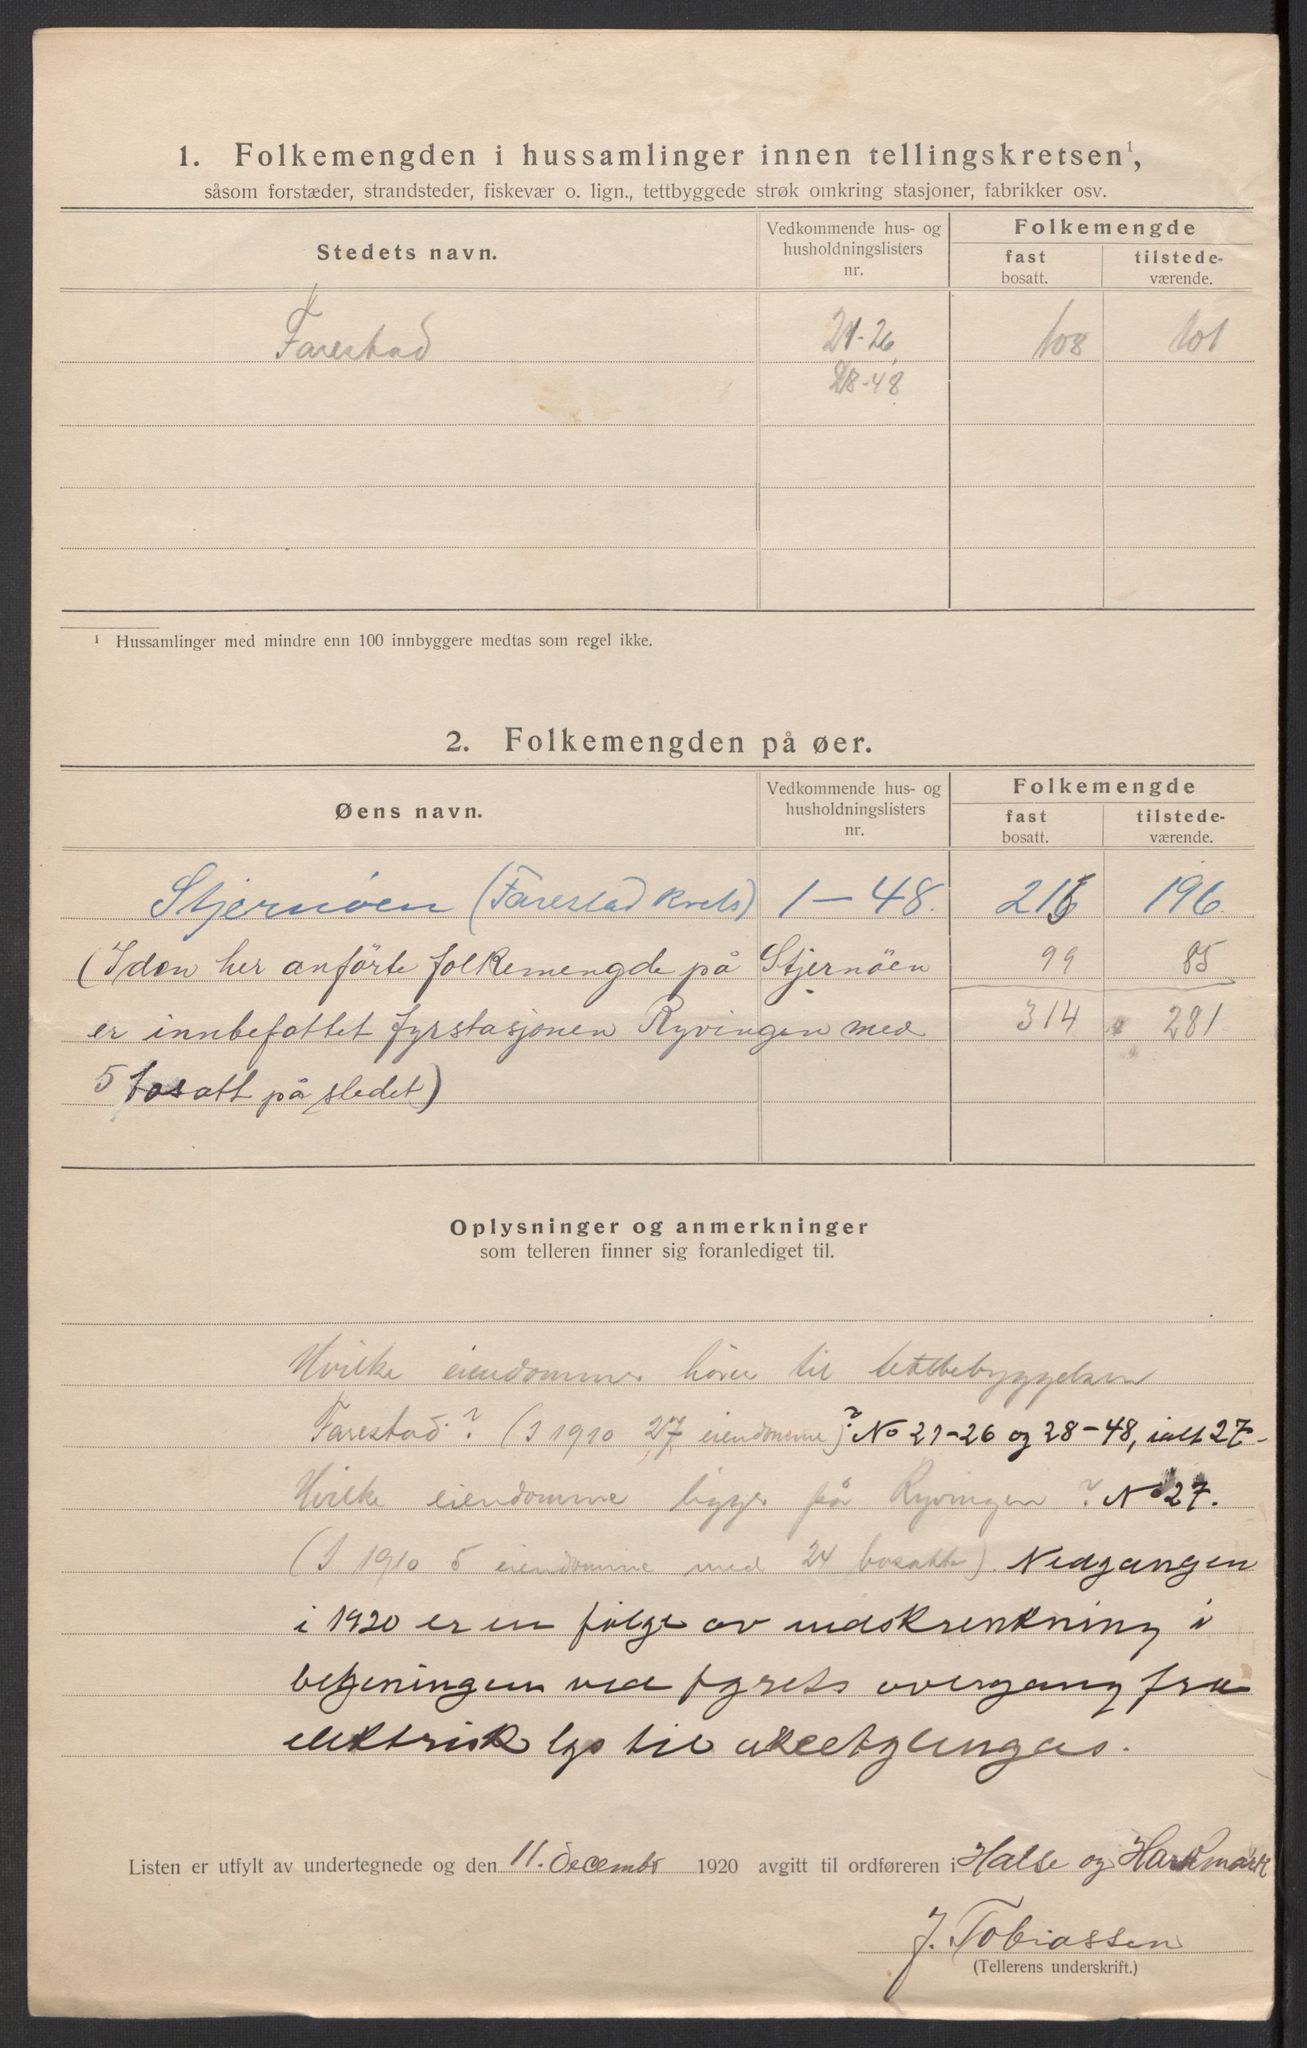 1. Folkemengden i hussamlinger innen tellingskretsen¹,
såsom forstæder, strandsteder, fiskevær o. lign., tettbyggede strøk omkring stasjoner, fabrikker osv.
Stedets navn. Vedkommende hus- og husholdningslisters nr. Folkemengde
fast bosatt. tilstede- værende.
Farestad 21-26 108 101
28-48
¹ Hussamlinger med mindre enn 100 innbyggere medtas som regel ikke.
2. Folkemengden på øer.
Øens navn. Vedkommende hus- og husholdningslisters nr. Folkemengde
fast bosatt. tilstede- værende.
Stjernøen (Farestad krets) 1-48. 215 196.
(I den her anførte folkemengde på Stjernöen 99 85
er innbefattet fyrstasjonen Ryvingen med 314 281
5 bosatt på stedet)
Oplysninger og anmerkninger
som telleren finner sig foranlediget til.
Hvilke eiendomme hører til tettbebyggelsen
Farestad? (I 1910 27 eiendomme)? No 21-26 og 28-48, ialt 27-
Hvilke eiendomme ligge på Ryvingen? No 27.
(I 1910 5 eiendomme med 24 bosatte). Nedgangen
i 1920 er en følge av indskrenkning i
betjeningen ved fyrets overgang fra
elektrisk lys til acetylengas.
Listen er utfylt av undertegnede og den 11. december 1920 avgitt til ordføreren i Halse og Harkmark
J. Tobiassen
(Tellerens underskrift.)